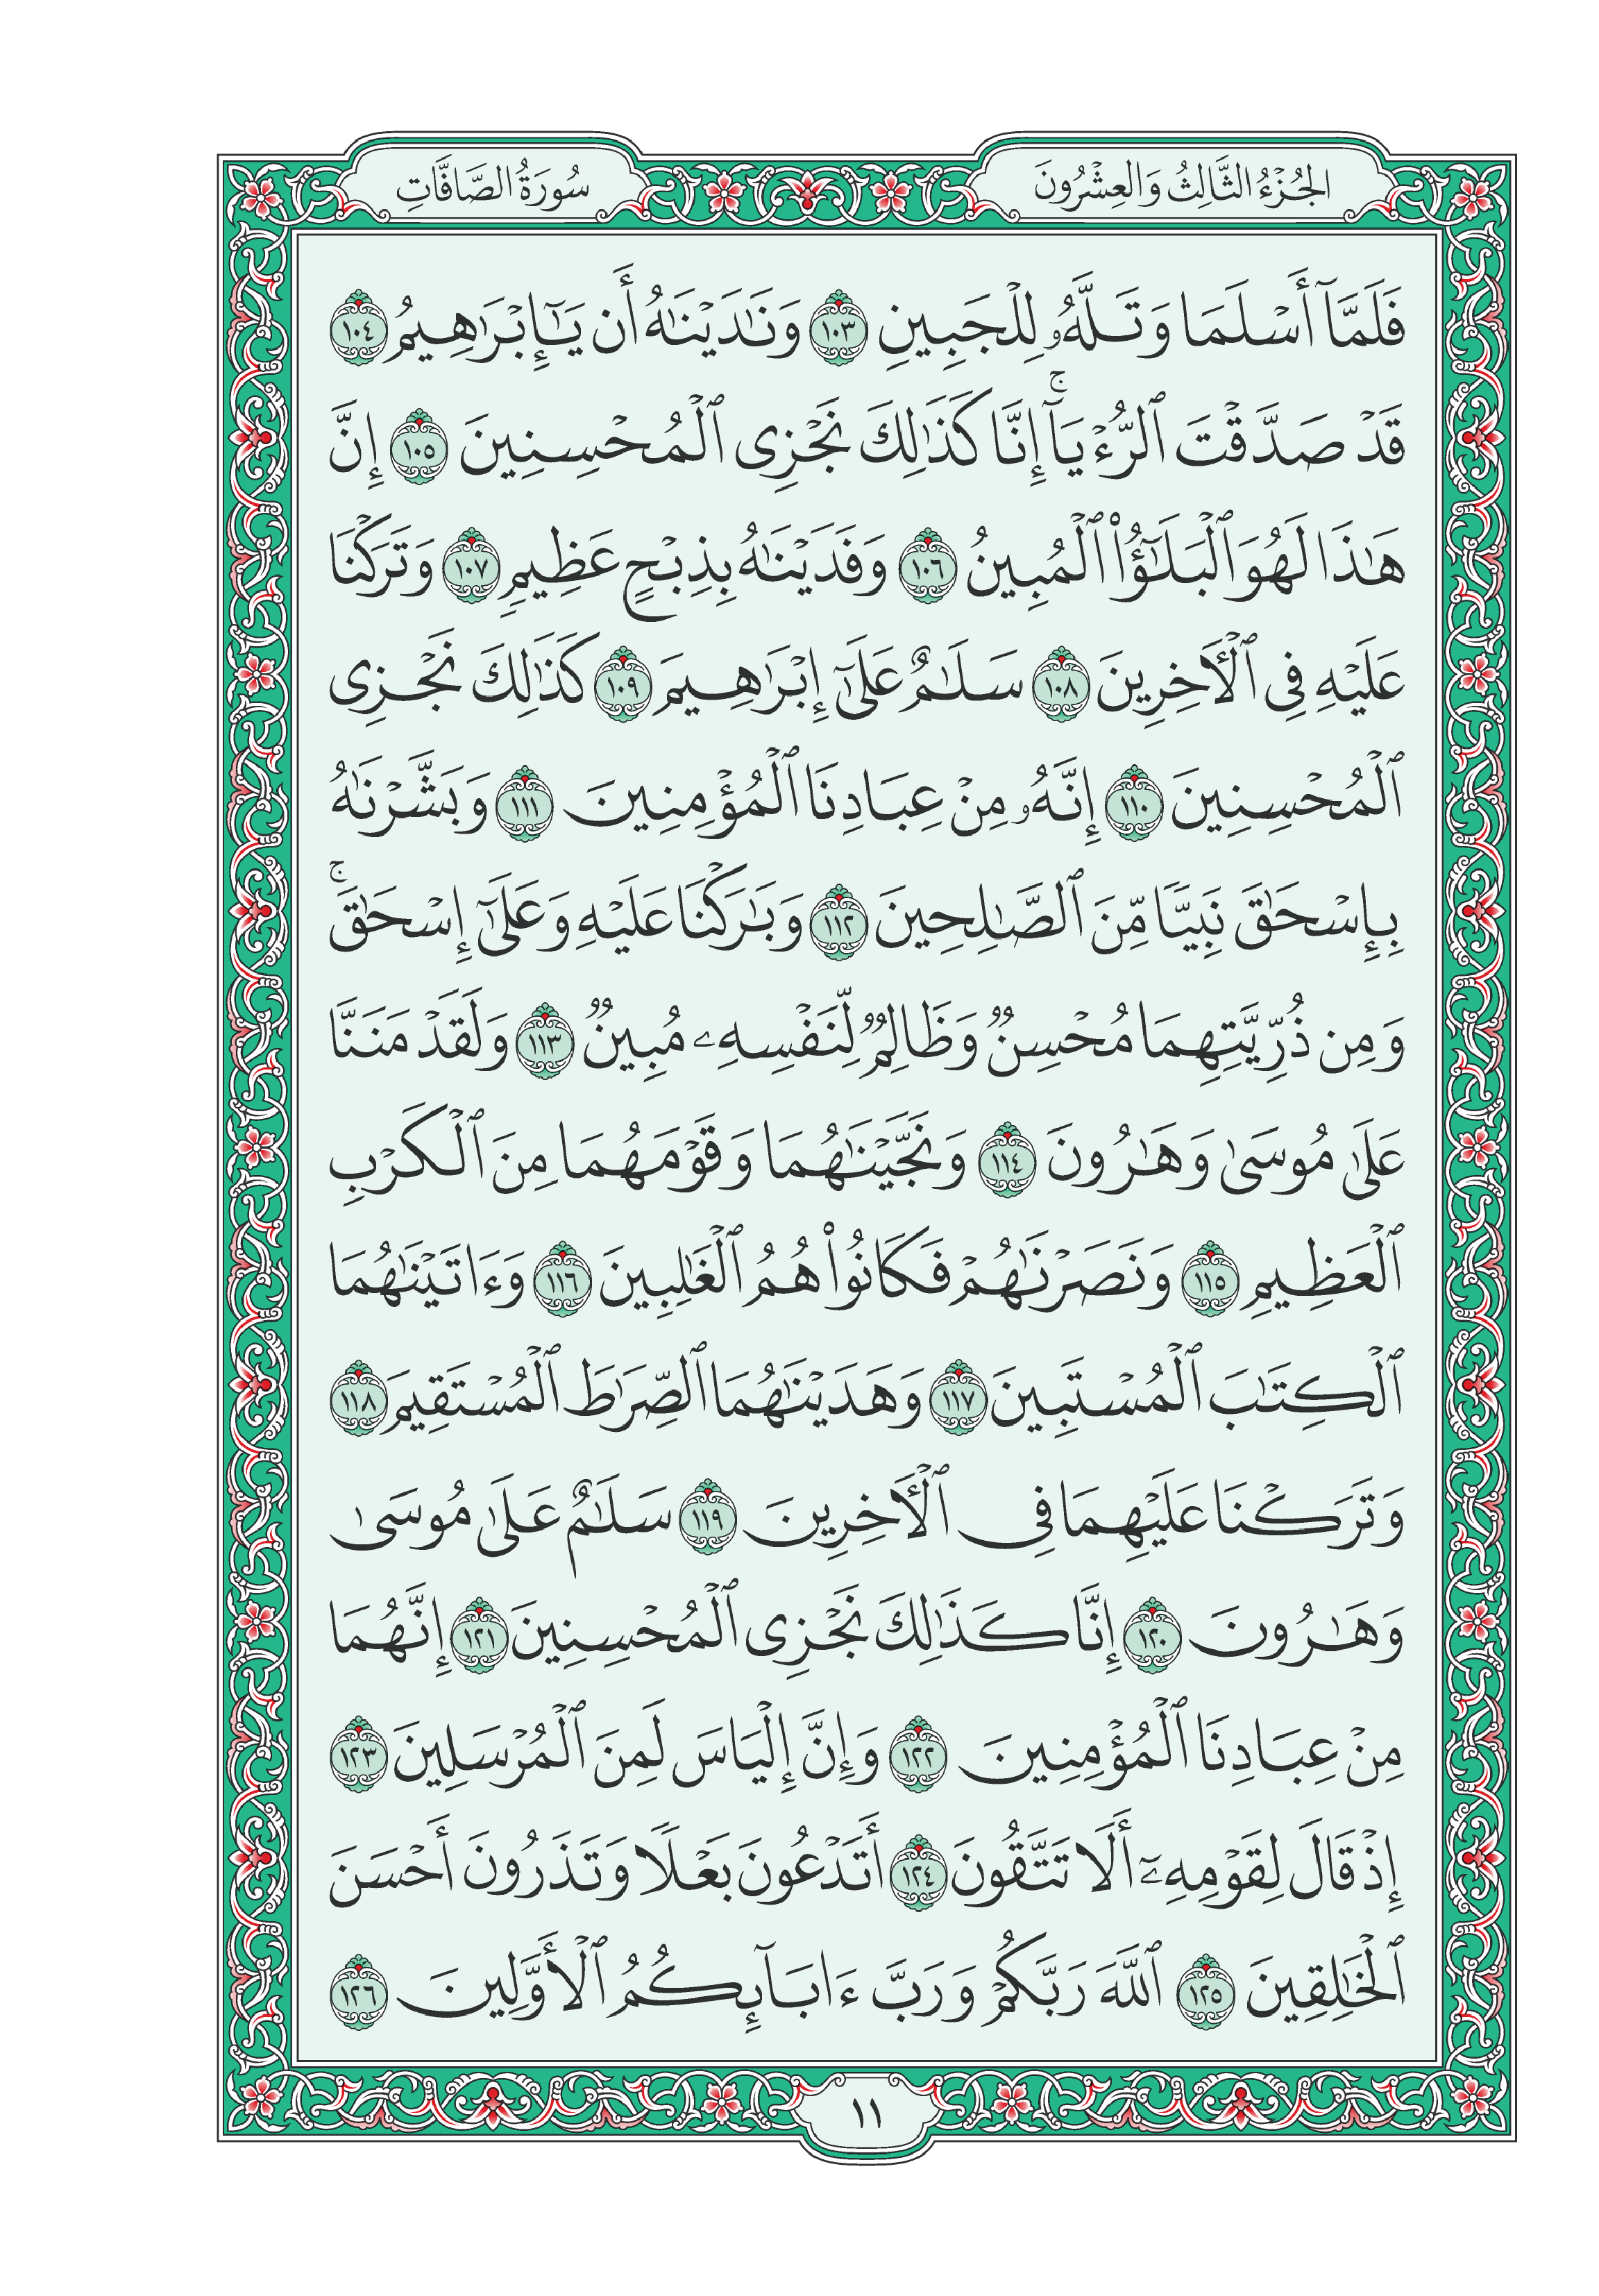 الجُزْءُ الثَّالِثُ وَالعِشْرُونَ
سُورَةُ الصَّافَّاتِ
فَلَمَّآ أَسْلَمَا وَتَلَّهُۥ لِلْجَبِينِ ١٠٣ وَنَٰدَيْنَٰهُ أَن يَٰٓإِبْرَٰهِيمُ ١٠٤
قَدْ صَدَّقْتَ ٱلرُّءْيَآۚ إِنَّا كَذَٰلِكَ نَجْزِى ٱلْمُحْسِنِينَ ١٠٥ إِنَّ
هَٰذَا لَهُوَ ٱلْبَلَٰٓؤُا۟ ٱلْمُبِينُ ١٠٦ وَفَدَيْنَٰهُ بِذِبْحٍ عَظِيمٍ ١٠٧ وَتَرَكْنَا
عَلَيْهِ فِى ٱلْـَٔاخِرِينَ ١٠٨ سَلَٰمٌ عَلَىٰٓ إِبْرَٰهِيمَ ١٠٩ كَذَٰلِكَ نَجْزِى
ٱلْمُحْسِنِينَ ١١٠ إِنَّهُۥ مِنْ عِبَادِنَا ٱلْمُؤْمِنِينَ ١١١ وَبَشَّرْنَٰهُ
بِإِسْحَٰقَ نَبِيًّا مِّنَ ٱلصَّٰلِحِينَ ١١٢ وَبَٰرَكْنَا عَلَيْهِ وَعَلَىٰٓ إِسْحَٰقَۚ
وَمِن ذُرِّيَّتِهِمَا مُحْسِنٌ وَظَالِمٌ لِّنَفْسِهِۦ مُبِينٌ ١١٣ وَلَقَدْ مَنَنَّا
عَلَىٰ مُوسَىٰ وَهَٰرُونَ ١١٤ وَنَجَّيْنَٰهُمَا وَقَوْمَهُمَا مِنَ ٱلْكَرْبِ
ٱلْعَظِيمِ ١١٥ وَنَصَرْنَٰهُمْ فَكَانُوا۟ هُمُ ٱلْغَٰلِبِينَ ١١٦ وَءَاتَيْنَٰهُمَا
ٱلْكِتَٰبَ ٱلْمُسْتَبِينَ ١١٧ وَهَدَيْنَٰهُمَا ٱلصِّرَٰطَ ٱلْمُسْتَقِيمَ ١١٨
وَتَرَكْنَا عَلَيْهِمَا فِى ٱلْـَٔاخِرِينَ ١١٩ سَلَٰمٌ عَلَىٰ مُوسَىٰ
وَهَٰرُونَ ١٢٠ إِنَّا كَذَٰلِكَ نَجْزِى ٱلْمُحْسِنِينَ ١٢١ إِنَّهُمَا
مِنْ عِبَادِنَا ٱلْمُؤْمِنِينَ ١٢٢ وَإِنَّ إِلْيَاسَ لَمِنَ ٱلْمُرْسَلِينَ ١٢٣
إِذْ قَالَ لِقَوْمِهِۦٓ أَلَا تَتَّقُونَ ١٢٤ أَتَدْعُونَ بَعْلًا وَتَذَرُونَ أَحْسَنَ
ٱلْخَٰلِقِينَ ١٢٥ ٱللَّهَ رَبَّكُمْ وَرَبَّ ءَابَآئِكُمُ ٱلْأَوَّلِينَ ١٢٦
١١